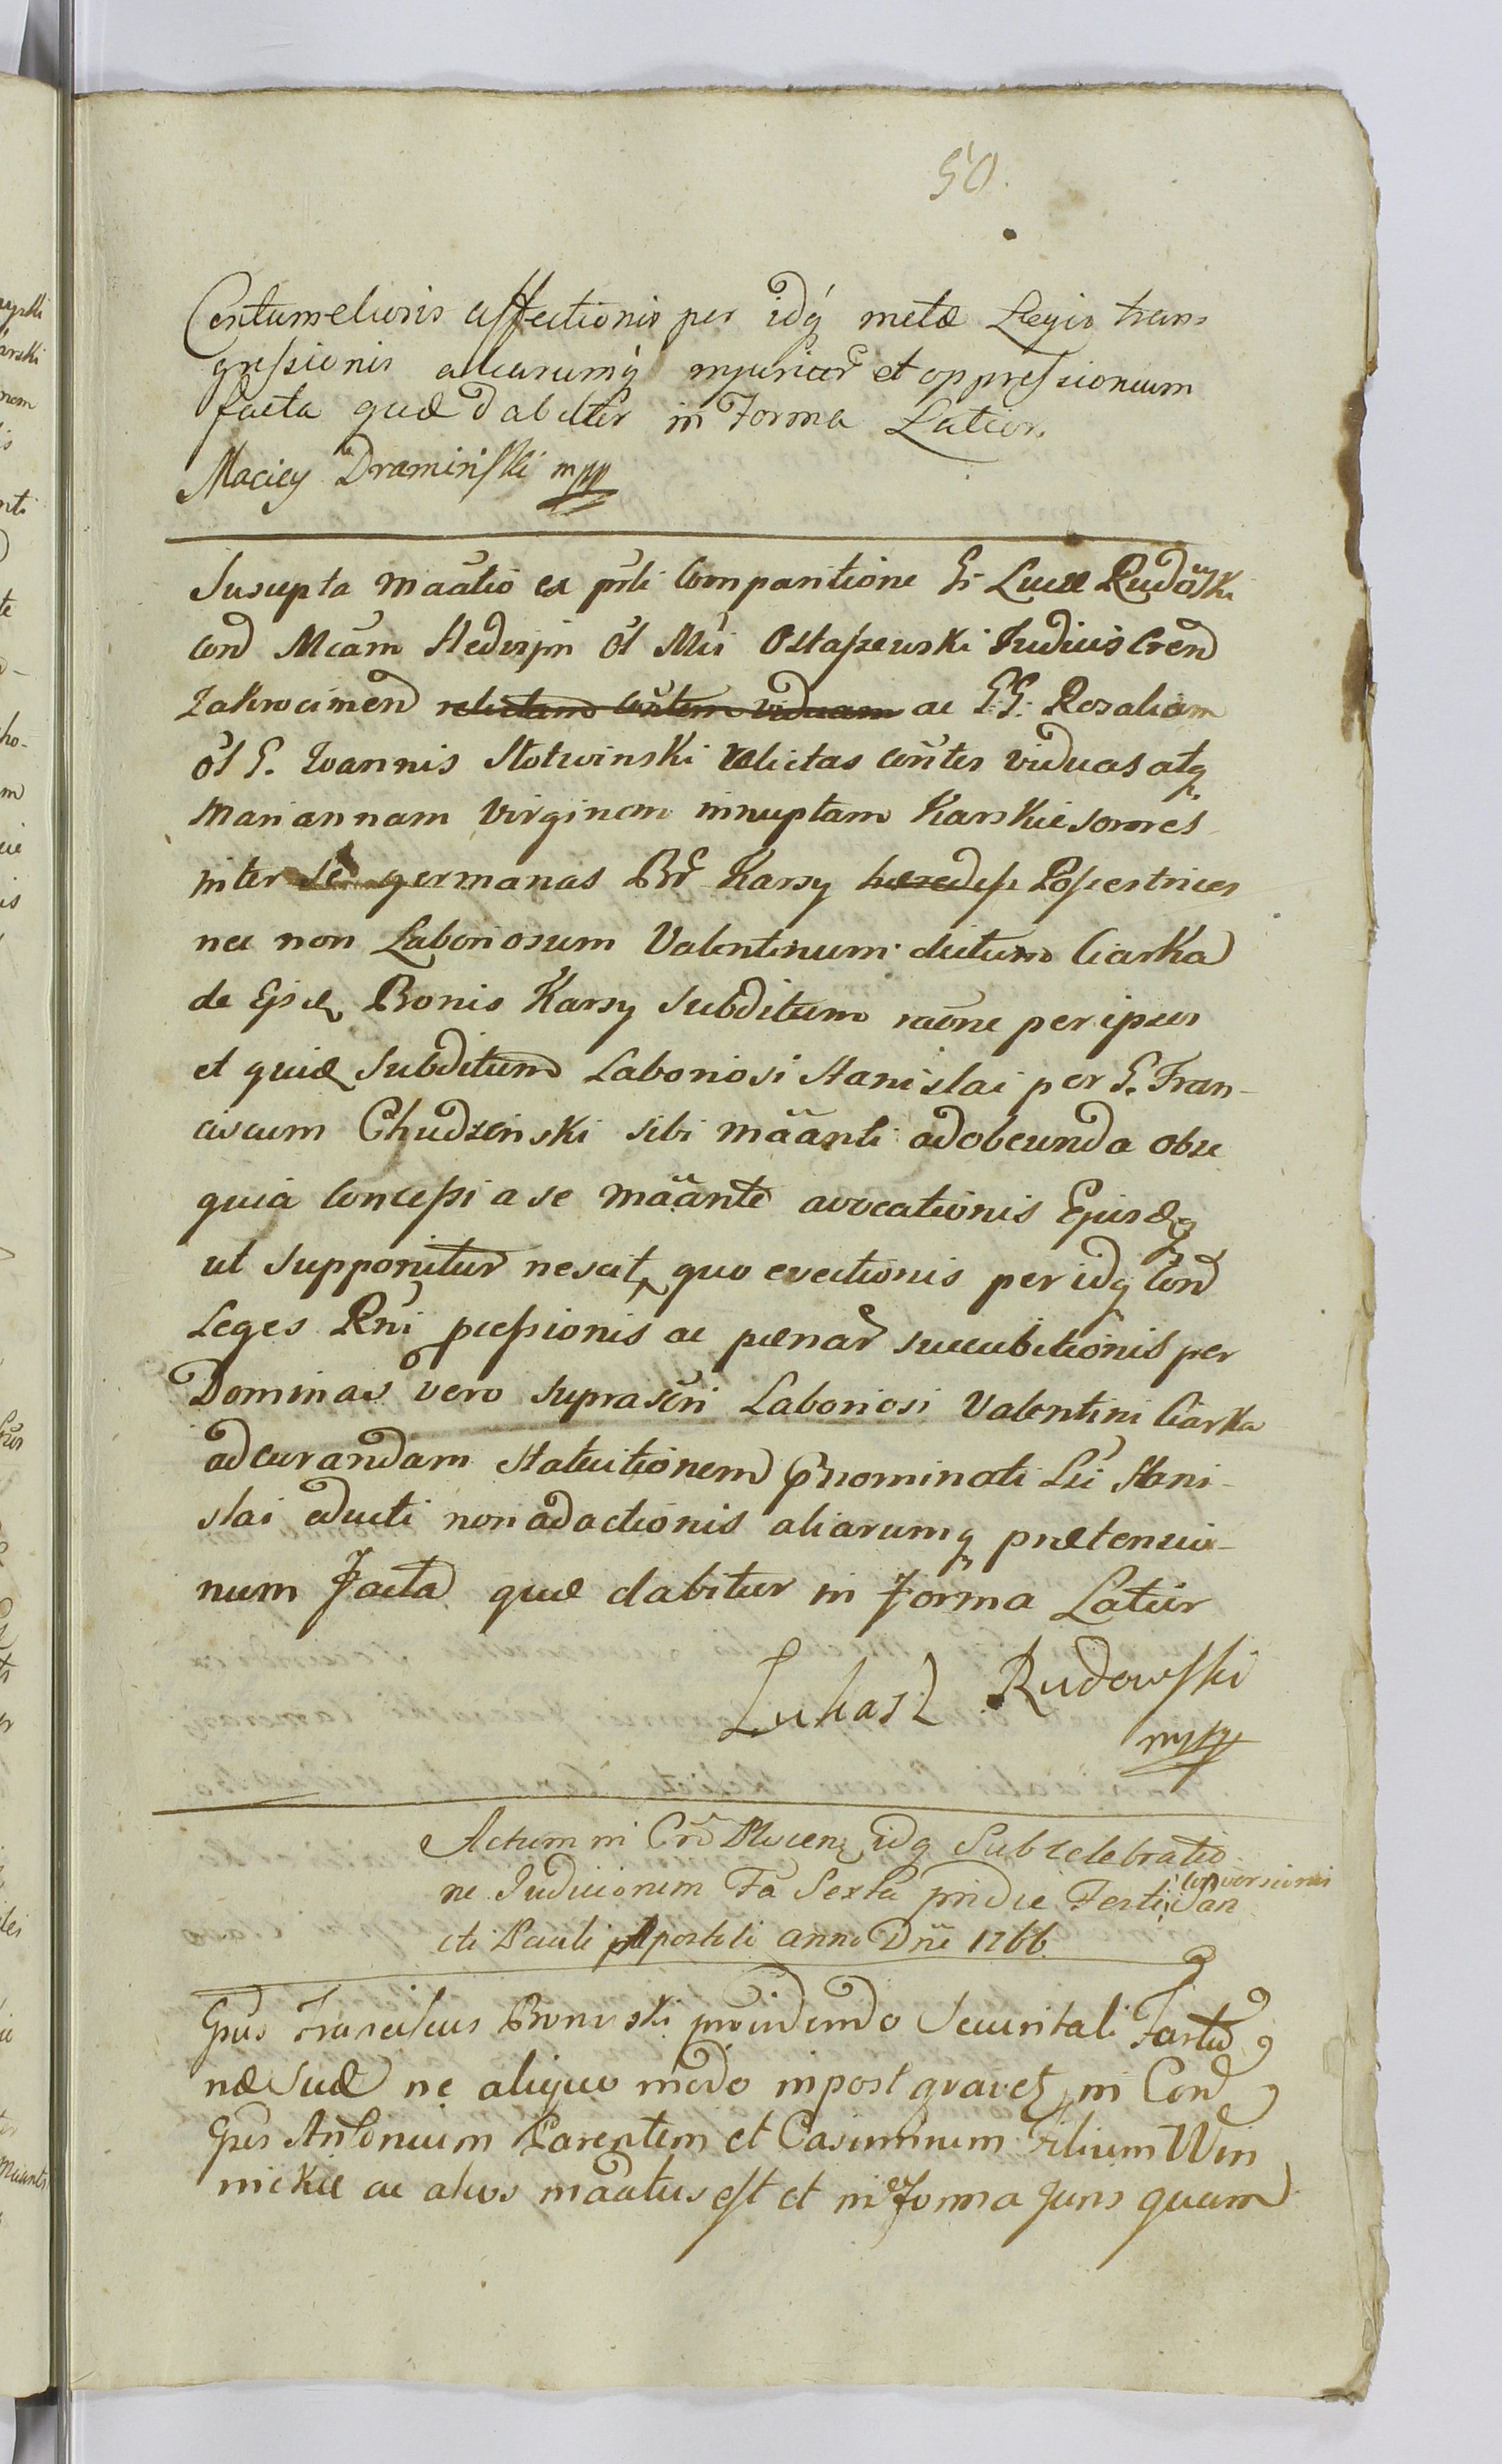 50.
Contumeliosis affectionis per idq́ metæ Legis trans
gressionis aliarumq́ injuriar et oppressionum
facta quæ dabitur in Forma Latior.
Maciey Draminski mpp
Suscepta maãtio ex pñti Comparitione G. Lucæ Rudõski
Con̄d Mcam Hedvigin ol Mci Ostaszewski Judicis Cren̄d
Zakrocimen̄d relictam cõntem viduam ac G.G. Rosaliam
ol G. Ioannis Slotwinski relictas cõntes viduas atq
Mariannam Virginem innuptam Karskie sorores
inter se germanas Br Karsy hæred Possestrices
nec non Laboriosum Valentinum dictum Ciarka
de Eisd Bonis Karsy subditum raõne per ipsos
et quid Subditum Laboriosi Stanislai per G. Fran-
ciscum Chudzinski sibi mããnti ad obeunda obse
quia Concessi a se mããnte avocationis Ejusdq
ut supponitur nescit quo evectionis per idq Con̄d
Leges Rñi pcessionis ac pænar succubitionis per
Dominas vero suprascri Laboriosi Valentini Ciarka
ad curandam statuitionem pnominati Lsi Stani-
slai educti non adactionis aliarumq prætensio-
num Facta quæ dabitur in Forma Latior
Lukasz Rudowski
mpp
Actum in Crd Plocen idq Sub celebratio
ne Judiciorum Fa Sexta pridie Festi San
Conversionis
cti Pauli Apostoli anno Dñi 1766
Gsus Franciscus Bromirski providendo Securitati Fortu
næ suæ ne aliquo modo inpost gravet, in Con̄d
Gsos Antonium Parentem et Casimirum Filium Win
nickie ac alios maãtus est et in Forma Juris quam